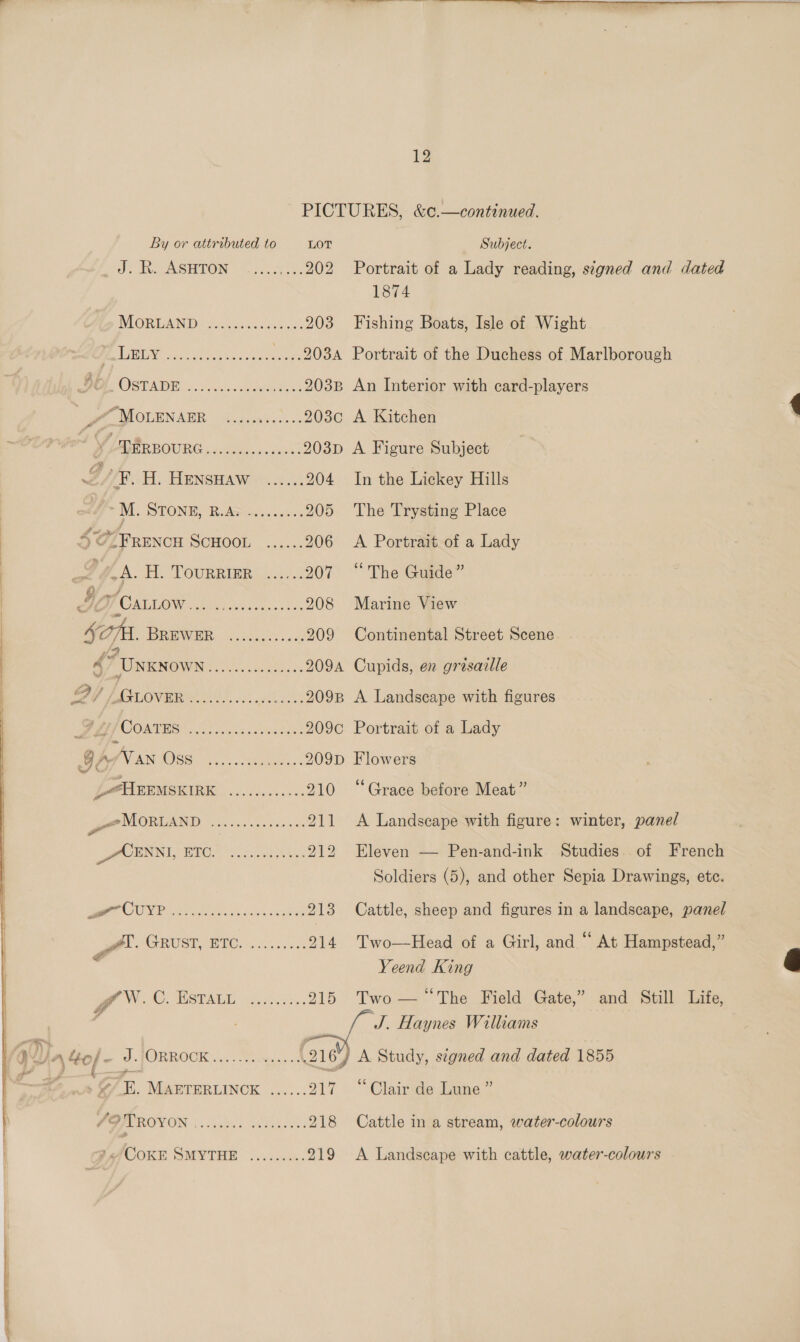 12
PICTURES, &c.—continued.
By or attributed to LOT Subject.
J. R. ASHTON ......... 202 Portrait of a Lady reading, signed and dated
1874
MORLAND ............... 203 Fishing Boats, Isle of Wight
LELY ..................... 203A Portrait of the Duchess of Marlborough
OSTADE .................. 203B An Interior with card-players
MOLENAER ............ 203C A Kitchen
TERBOURG ............... 203D A Figure Subject
F. H. HENSHAW ...... 204 In the Lickey Hills
M. STONE, R.A. ......... 205 The Trysting Place
FRENCH SCHOOL ...... 206 A Portrait of a Lady
A. H. TOURRIER ...... 207 “The Guide”
CALLOW .................. 208 Marine View
H. BREWER ............ 209 Continental Street Scene
UNKNOWN ............... 209A Cupids, en grisaille
GLOVER .................. 209B A Landscape with figures
COATES .................. 209C Portrait of a Lady
VAN OSS ............... 209D Flowers
HEEMSKIRK ............ 210 “Grace before Meat”
MORLAND ............... 211 A Landscape with figure: winter, panel
CENNI, ETC. ............ 212 Eleven — Pen-and-ink Studies of French
Soldiers (5), and other Sepia Drawings, etc.
CUYP ..................... 213 Cattle, sheep and figures in a landscape, panel
T. GRUST, ETC. ......... 214 Two—Head of a Girl, and “At Hampstead,”
Yeend King
W. C. ESTALL ......... 215 Two — “The Field Gate,” and Still Life,
J. Haynes Williams
J. ORROCK ............... 216 A Study, signed and dated 1855
E. MAETERLINCK ...... 217 “Clair de Lune”
TROYON .................. 218 Cattle in a stream, water-colours
COKE SMYTHE ......... 219 A Landscape with cattle, water-colours